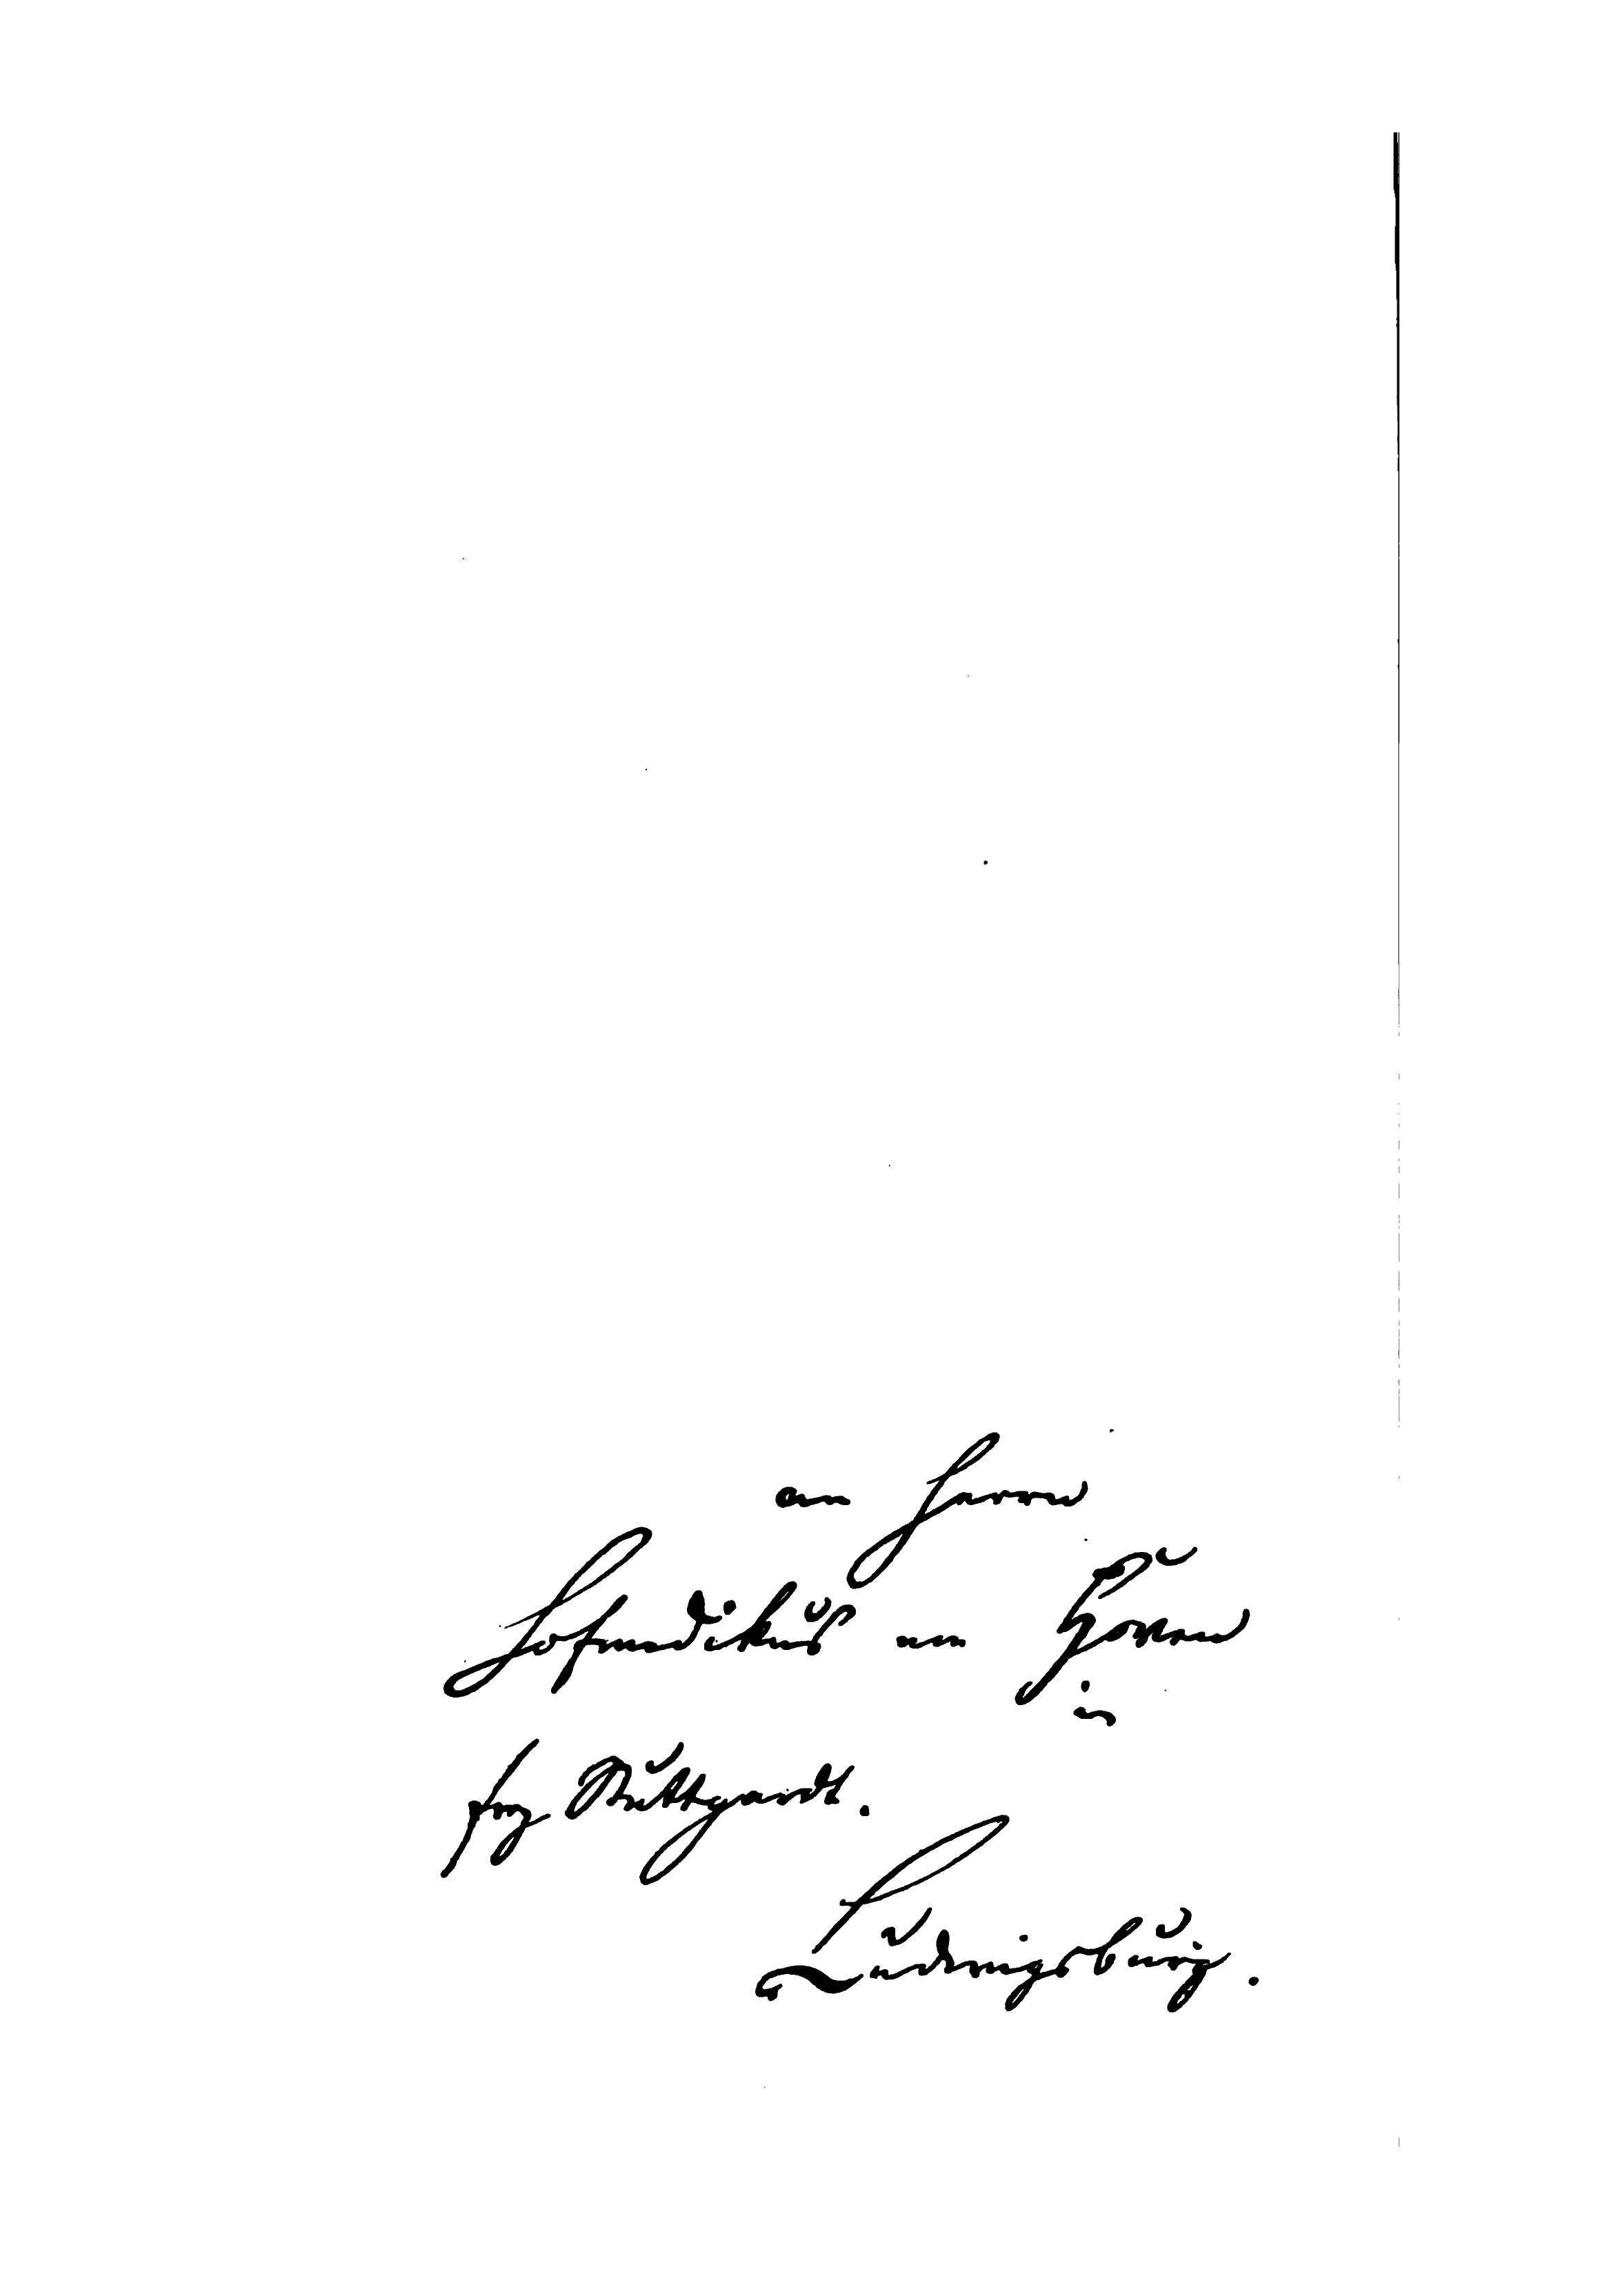 an Herrn
Hofmedikus von
in
Stuttgardt.
Ludwigsburg.